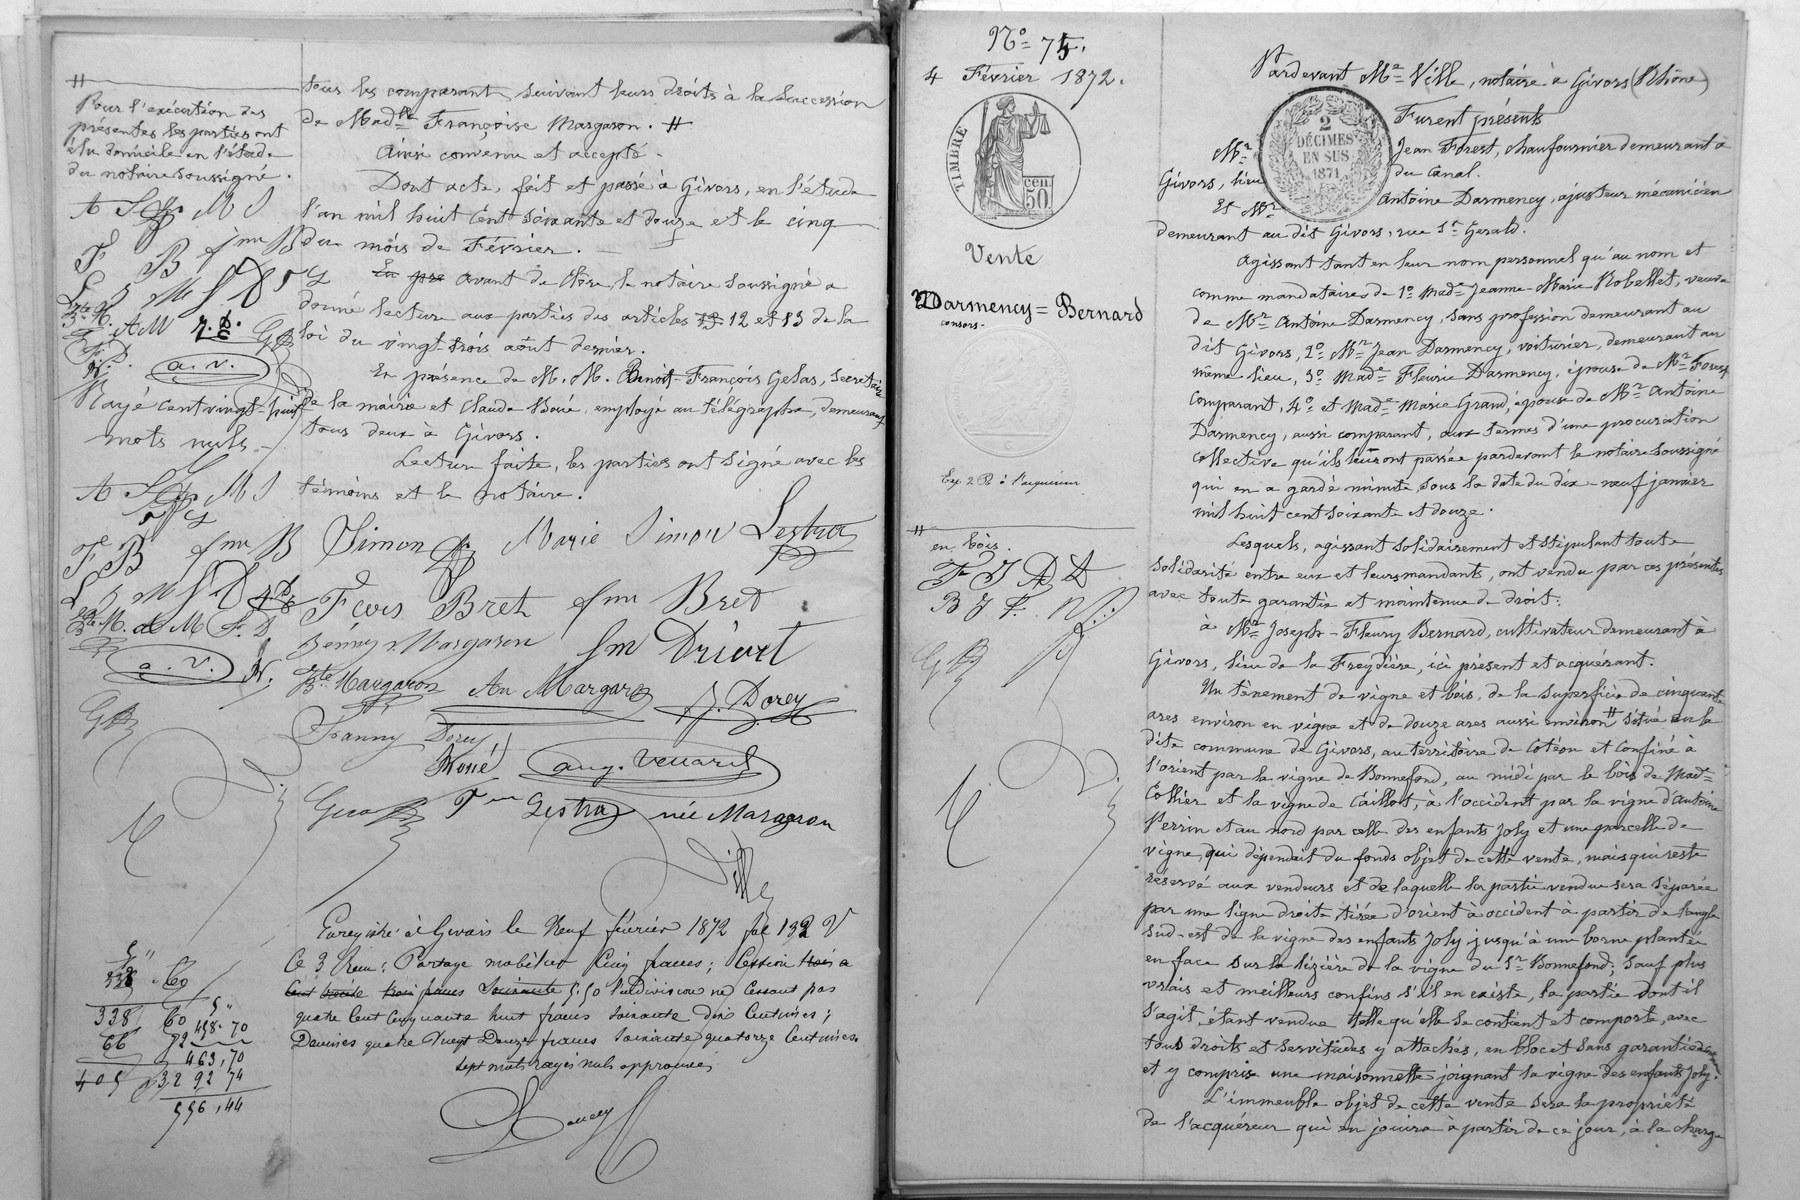 #
Pour l'exécution des
présentes les parties ont
élu domicile en l'étude
du notaire soussigné.
tous les comparant suivant leurs droits à la succession
de Madlle Françoise Margaron. #
Ainsi convenu et accepté.
Dont acte, fait et passé à Givors, en l'étude
l'an mil huit cent soixante et douze et le cinq
du mois de Février.
En pre avant de clore, le notaire soussigné a
donné lecture aux parties des articles 13 12 et 13 de la
loi du vingt-trois août dernier.
En présence de M. M. Benoit-François Gelas, Secrétaire
de la mairie et Claude Boué, employé au télégraphe, demeurant
tous deux à Givors.
Lecture faite, les parties ont signé avec les
témoins et le notaire.
a. v.
Rayé cent vingt-huit
mots nuls.
Simon Marie Simon Lestra
Fcois Bret fme Bret
Bémy Margaron fm Drivet
Bte Margaron An Margaron J. Dorey
Fanny Dorey
Boué aug. Venard
a. v.
Lestra née Margaron
Ville
Enregistré à Givors le Neuf février 1872 fol 132 V
Ce 3. Reçu: Partage mobilier Cinq francs; Cession trois a
cent treize trois francs soixante 5.50 l'indivision ne cessant pas
quatre cent cinquante huit francs soixante dix centimes;
Décimes quatre vingt Douze francs soixante quatorze centimes.
sept mots rayés nuls approuvés
5 "
338 60
338 60 5 "
66 72 458.70
463,70
405 32 92 74
556,44
No 75.
4 Février 1872.
TIMBRE
50 cen.
Vente
Darmency = Bernard
consors.
Exp. 2 R. à l'acquéreur
#
en bois.
Pardevant Me Ville, notaire à Givors (Rhône)
2
DÉCIMES
EN SUS
1871
Furent présents
Mr Jean Forest, chaufournier demeurant à
Givors, lieu du Canal.
Et Mr Antoine Darmency, ajusteur mécanicien
demeurant au dit Givors, rue St Gerald.
Agissant tant en leur nom personnel qu'au nom et
comme mandataires de 1o Made Jeanne-Marie Robellet, veuve
de Mr Antoine Darmency, sans profession demeurant au
dit Givors, 2o Mr Jean Darmency, voiturier, demeurant au
même lieu, 3o Made Fleurie Darmency, épouse de Mr Forest
comparant, 4o et Made Marie Grand, épouse de Mr Antoine
Darmency, aussi comparant, aux termes d'une procuration
collective qu'ils leur ont passée pardevant le notaire soussigné
qui en a gardé minute, sous la date du dix-neuf janvier
mil huit cent soixante et douze.
Lesquels, agissant solidairement et stipulant toute
solidarité entre eux et leurs mandants, ont vendu par ces présentes
avec toute garantie et maintenue de droit:
à Mr Joseph-Fleury Bernard, cultivateur demeurant à
Givors, lieu de la Freydière, ici présent et acquérant.
Un tènement de vigne et bois, de la superficie de cinquante
ares environ en vigne et de douze ares aussi environ # situé en la
dite commune de Givors, au territoire de Cotéon et confiné à
l'orient par la vigne de Bonnefond, au midi par le bois de Made
Collier et la vigne de Caillot, à l'occident par la vigne d'Antoine
Perrin et au nord par celle des enfants Joly et une parcelle de
vigne, qui dépendait du fonds objet de cette vente, mais qui reste
réservé aux vendeurs et de laquelle la partie vendue sera séparée
par une ligne droite, tirée d'orient à occident à partir de l'angle
sud-est de la vigne des enfants Joly jusqu'à une borne plantée
en face sur la lizière de la vigne du Sr Bonnefond; sauf plus
vrais et meilleurs confins s'il en existe, la partie dont il
s'agit, étant vendue telle qu'elle se contient et comporte, avec
tous droits et servitudes y attachés, en bloc et sans garantie de
et y compris une maisonnette joignant la vigne des enfants Joly.
L'immeuble objet de cette vente sera la propriété
de l'acquéreur qui en jouira à partir de ce jour, à la charge